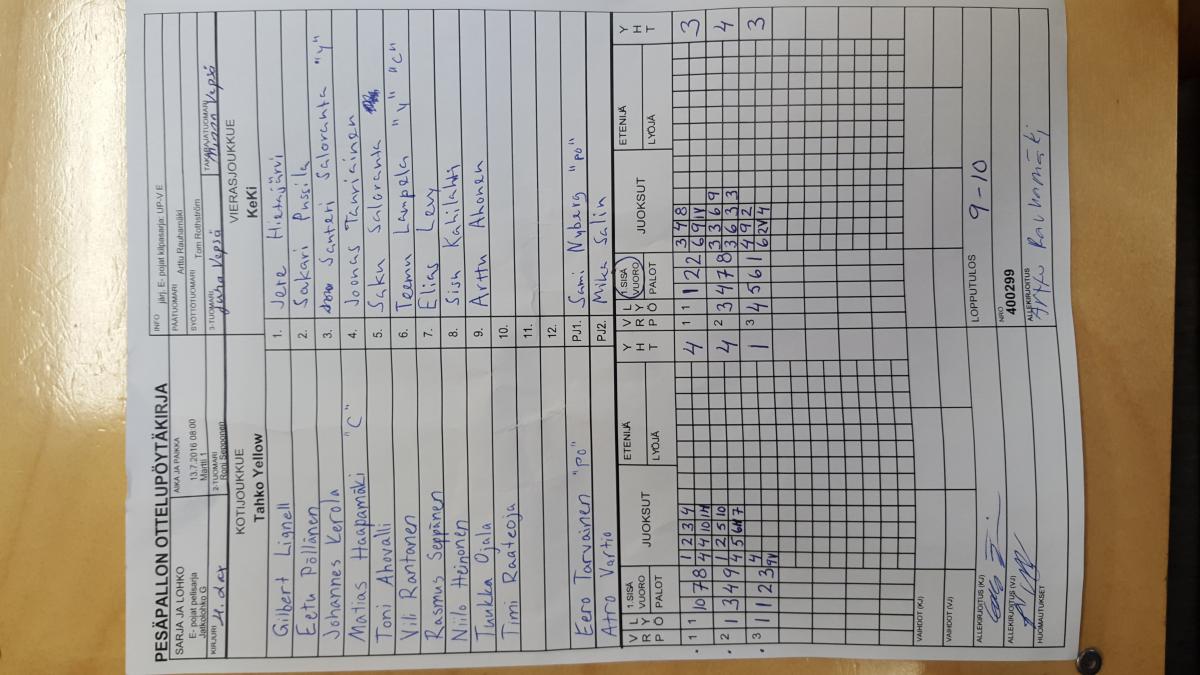 PESÄPALLON OTTELUPÖYTÄKIRJA
SARJA JA LOHKO
E- pojat pelisarja
Jatkolohko G
AIKA JA PAIKKA
13.7.2016 08:00
Martti 1
INFO järj. E- pojat kilpasarja: UP-V E
PÄÄTUOMARI Arttu Rauhamäki
SYÖTTÖTUOMARI Tom Rothström
KIRJURI
2-TUOMARI
Roni Seppönen
3-TUOMARI
Juho Vepsä
TAKARAJATUOMARI
Miran Vepsä
KOTIJOUKKUE
Tahko Yellow
VIERASJOUKKUE
KeKi
Gilbert Lignell 1. Jere Hietajärvi
Eetu Pöllänen 2. Sakari Pussila
Johannes Kerola 3. Santeri Saloranta "y"
Matias Haapamäki "C" 4. Joonas Tauriainen
Toni Ahovalli 5. Saku Saloranta
Vili Rantanen 6. Teemu Lampela "y" "C"
Rasmus Seppänen 7. Elias Levy
Niilo Heinonen 8. Sisu Kahilahti
Tuukka Ojala 9. Arttu Ahonen
Timi Raateoja 10.
11.
12.
Eero Tarvainen "PO" PJ1. Sami Nyberg "PO"
Atro Vartio PJ2. Mika Salin
V R P L Y Ö 1.SISÄ VUORO PALOT JUOKSUT ETENIJÄ LYÖJÄ Y H T
V R P L Y Ö 1.SISÄ VUORO PALOT JUOKSUT ETENIJÄ LYÖJÄ Y H T
1 1 10 7 8 1 2 3 4 4
4 4 10 1H
1 1 1 2 2 3 4 8 3
6 9 1V
2 1 3 4 9 1 2 5 10 4
4 5 6H 7
2 3 4 7 8 3 3 6 9 4
3 6 3 3
3 1 1 2 3 4 1
9V
3 4 5 6 1 4 9 2 3
6 2V 4
VAIHDOT (KJ)
VAIHDOT (VJ)
ALLEKIRJOITUS (KJ)
LOPPUTULOS 9-10
ALLEKIRJOITUS (VJ)
NRO
400299
HUOMAUTUKSET
ALLEKIRJOITUS
Arttu Rauhamäki